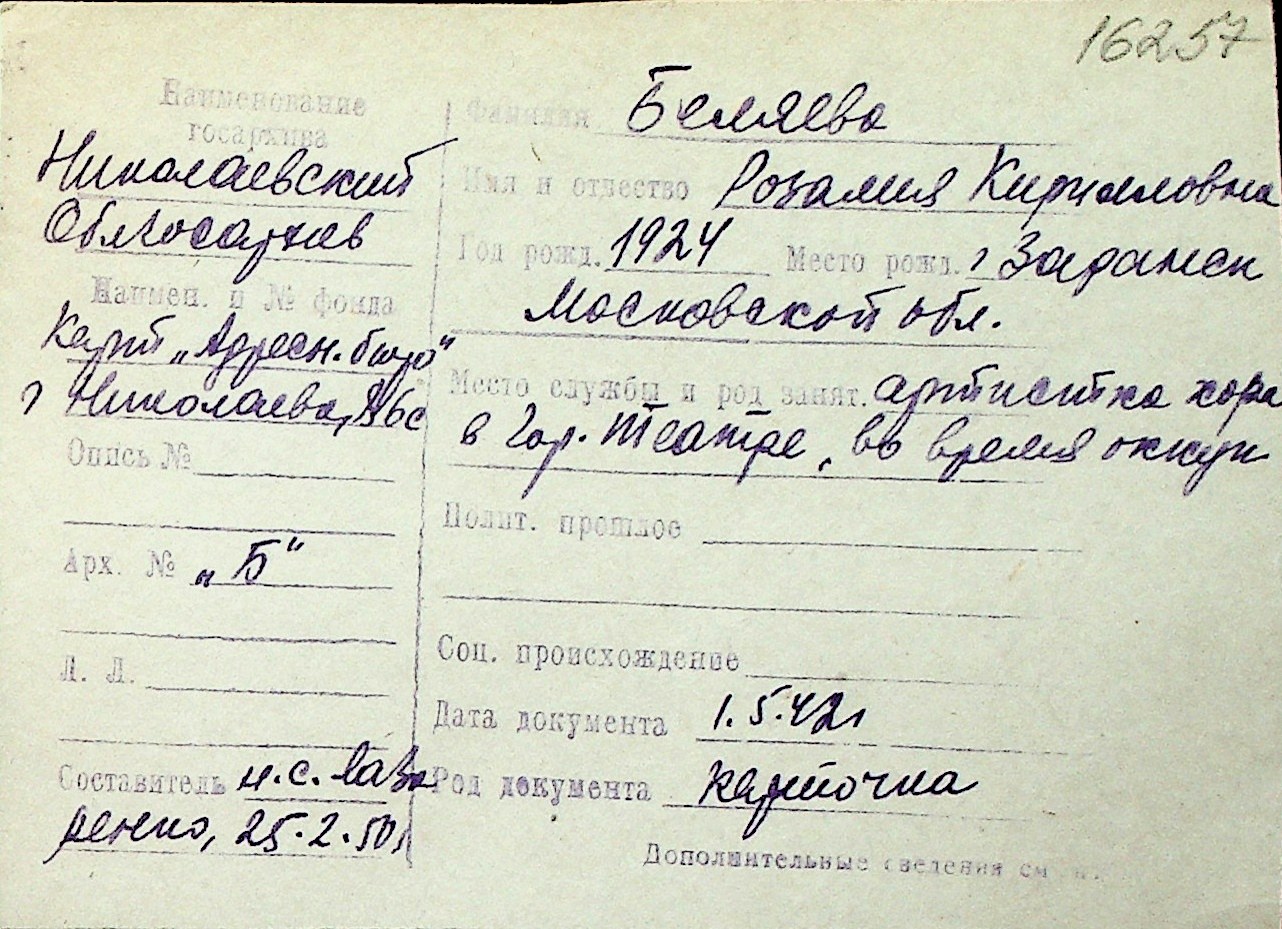 16257
Наименование
госархива
Николаевский
Облгосархив
Наимен. и № фонда
Карт „Адресн. бюро"
г Николаева,
Опись №
Арх. № „Б"
Л. Л.
Составитель н.с. Лаза
ренко, 25.2.50г
Фамилия Беляева
Имя и отчество Розалия Кирилловна
Год рожд. 1924 Место рожд. г
Московской обл.
Место службы и род занят. артистка хора
в Гор. театре, во время оккуп
Полит. прошлое
Соц. происхождение
Дата документа 1.5.42г
Род документа карточка
Дополнительные сведения см